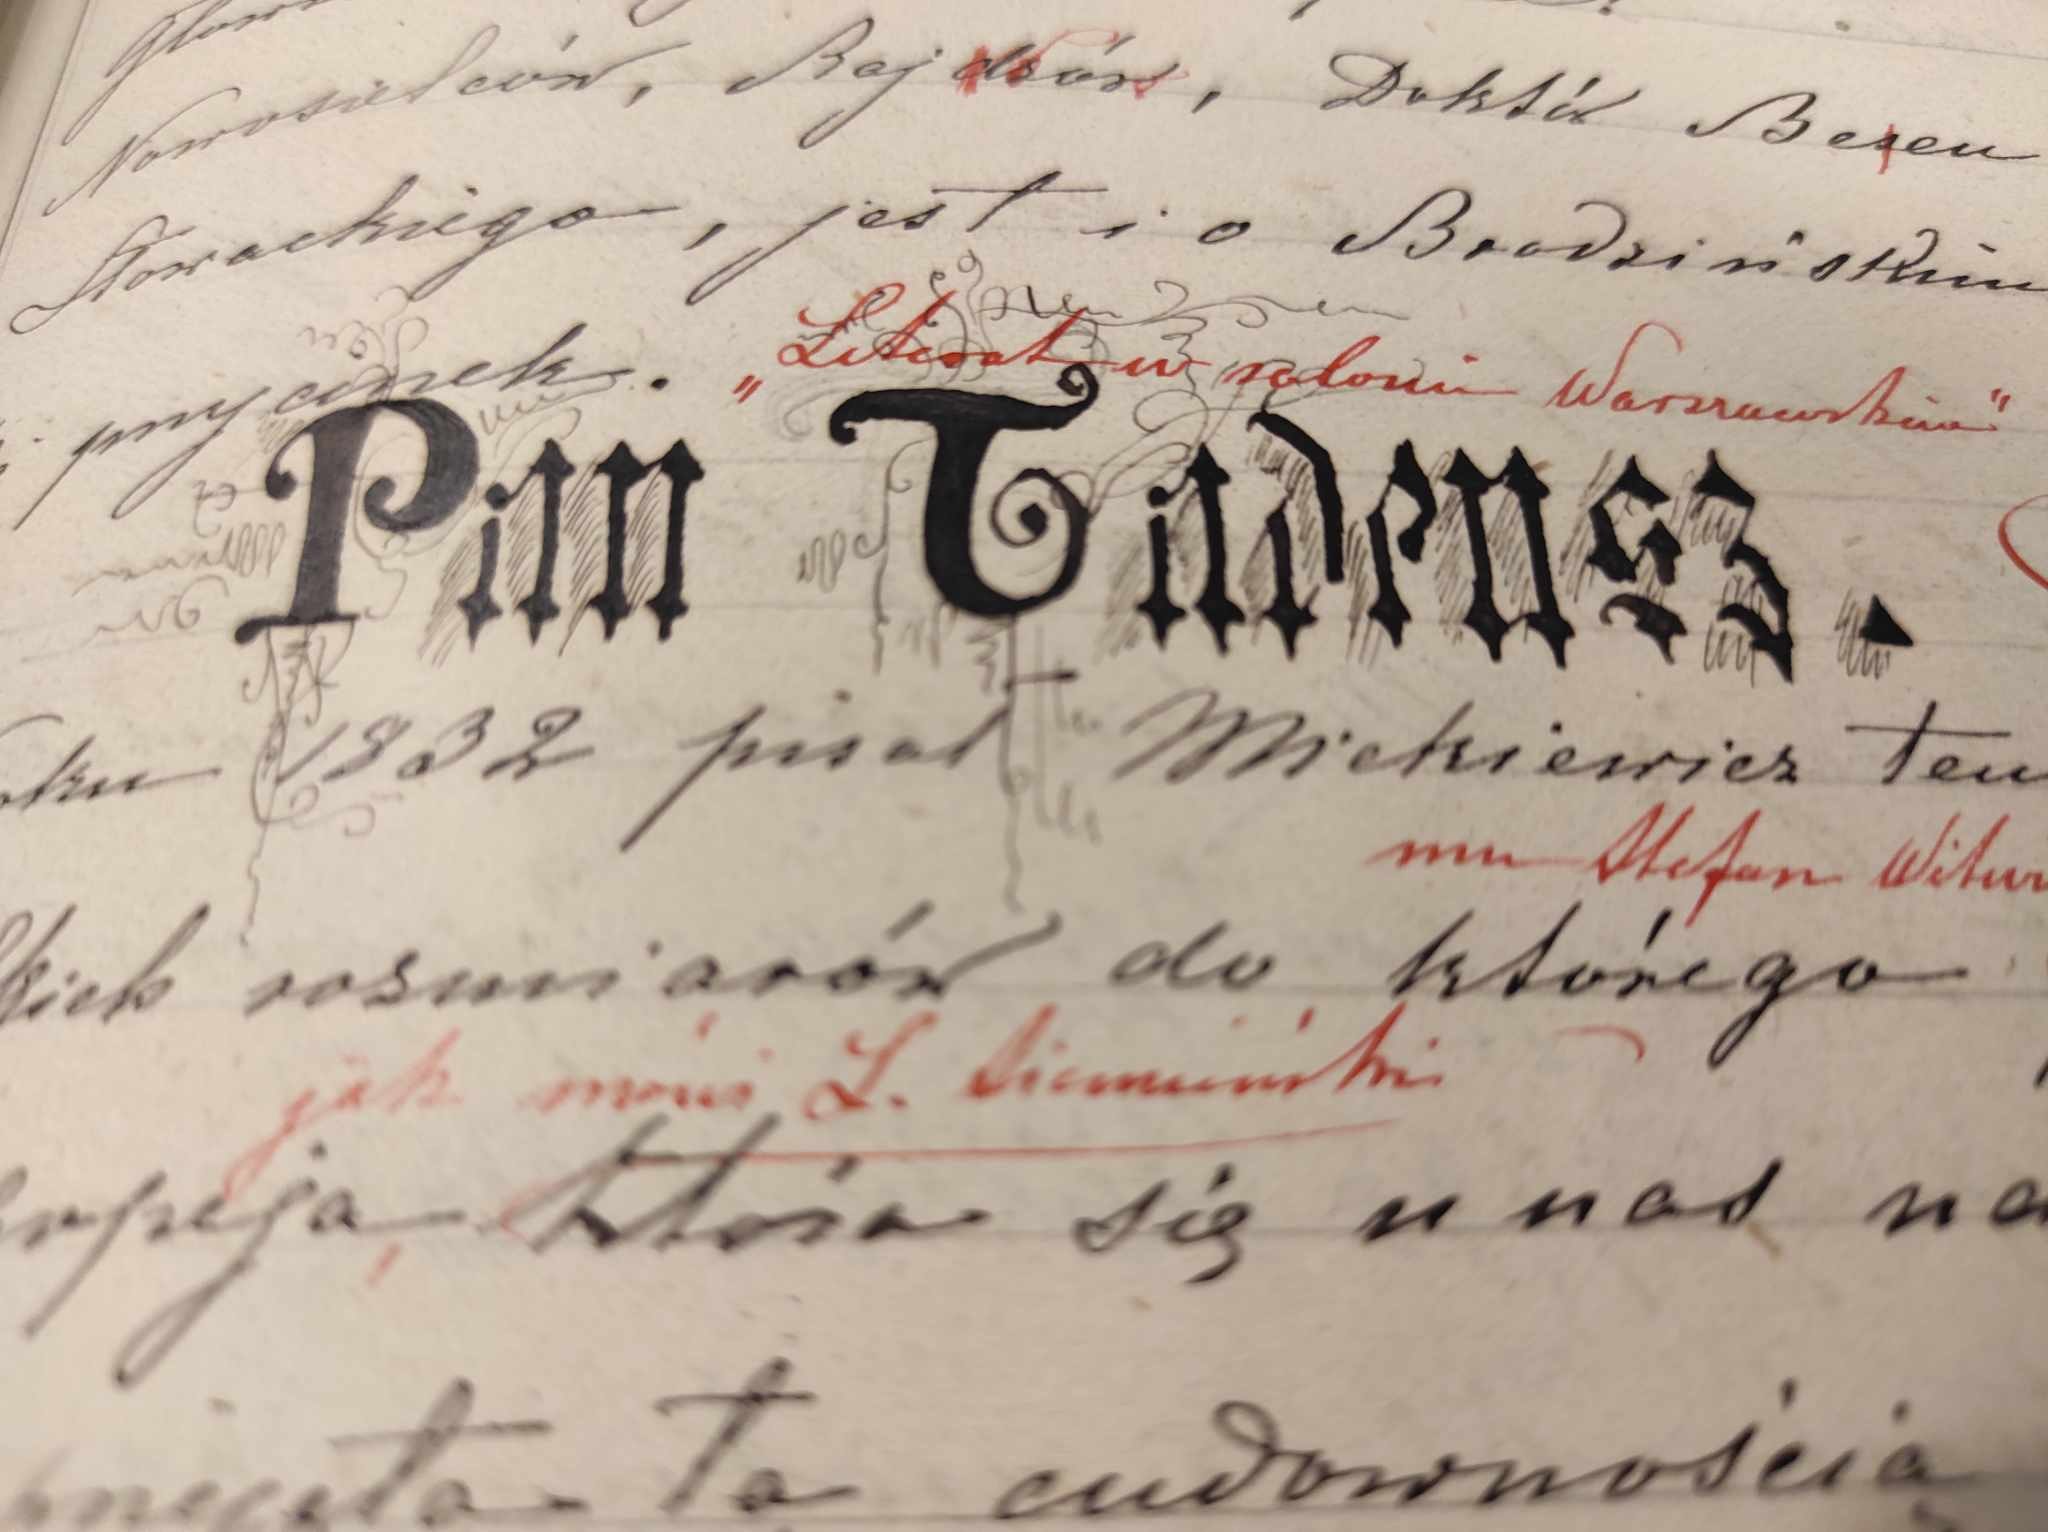 Nowosielców, Bajków, Doktór Becu
Słowackiego, jest i o Brodzińskim
przycinek. „Literat w salonie Warszawskim"
Pan Tadeusz.
1832 pisał Mickiewicz ten
mu Stefan Witwi
rozmiarów do którego
jak mówi L. Siemieński
która się u nas
ta cudownością